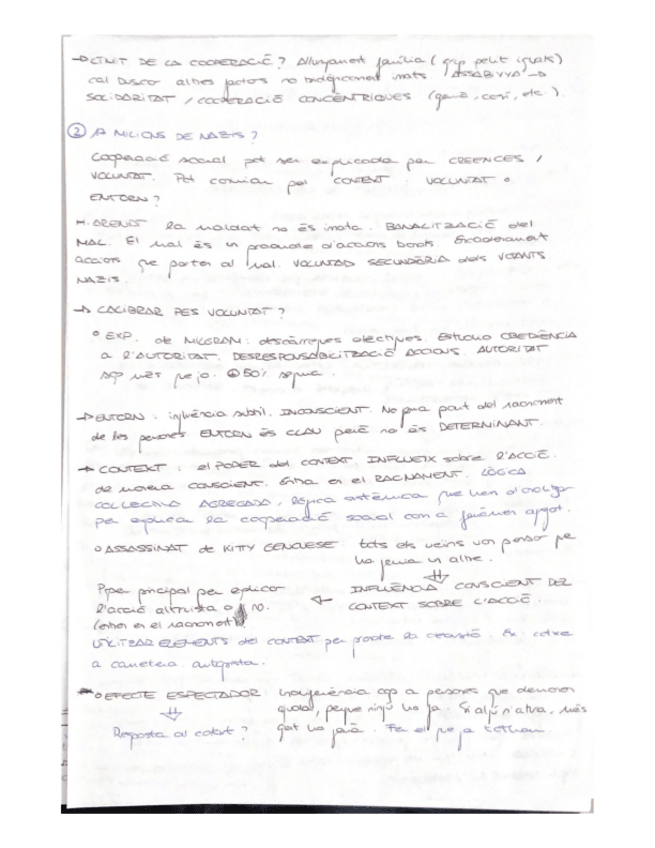 → LÍMIT DE LA COOPERACIÓ? Allunyament família (grup petit iguals)
cal buscar altres factors no innats "ASSABIYYA" →
SOLIDARITAT / COOPERACIÓ CONCÈNTRIQUES (, cosí, etc.).
② 17 MILIONS DE NAZIS?
Cooperació social pot ser explicada per CREENCES /
VOLUNTAT. Pot canviar pel CONTEXT, VOLUNTAT o
ENTORN?
H. ARENDT la maldat no és innata. BANALITZACIÓ del
MAL. El mal és un producte d'accions banals.
accions que porten al mal. VOLUNTAD SECUNDÀRIA dels VOTANTS
NAZIS.
→ CALIBRAR PES VOLUNTAT?
o EXP. de MILGRAM: descàrregues elèctriques. Estudio OBEDIÈNCIA
a l'AUTORITAT. DESRESPONSABILITZACIÓ ACCIONS. AUTORITAT
50% segueix.
→ ENTORN: influència subtil. INCONSCIENT. No forma part del raonament
de les persones. ENTORN ÉS CLAU però no és DETERMINANT.
→ CONTEXT: el PODER del CONTEXT, INFLUEIX sobre l'ACCIÓ.
de manera CONSCIENT. Entra en el RAONAMENT. LÒGICA
COL·LECTIVA AGREGADA, lògica sistèmica que hem d'afegir
per explicar la cooperació social com a fenomen agregat.
o ASSASSINAT de KITTY GENOVESE tots els veïns van pensar que
ho faria un altre.
⇓
Paper principal per explicar ← INFLUÈNCIA CONSCIENT DEL
l'acció altruista o no. CONTEXT SOBRE L'ACCIÓ.
(entra en el raonament)
UTILITZAR ELEMENTS del CONTEXT per prendre la decisió. Ex: cotxe
a carretera, autopista.
→ o EFECTE ESPECTADOR: indiferència cap a persones que demanen
⇓ ajuda, perquè ningú ho fa. Si algú s'atura, més
Resposta al context? gent ho farà. Fa el que fa tothom.